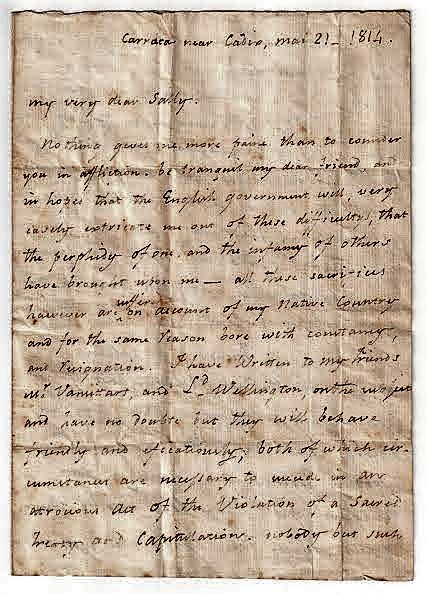 Carraca near Cadiz, Mai 21_ 1814.
my very dear Sally.
Nothing gives me more paine than to consider
you in affliction. be tranquil my dear friend, and
in hopes that the English government will very
easely extricate me out of these difficultys, that
the perphidy of one, and the infamy of others
have brought upon me — all these sacrifices
however are suffered on account of my Native Country
and for the same reason bore with constancy,
and Resignation. I have Written to my friends
Mr. Vansitart, and Ld. Wellington, on the subject
and have no doubt but they will behave
friendly and eficatiously; both of which cir-
cumstances are necessary to in an
atrocious Act of the Violation of a Sacred
treaty and Capitulation. nobody but such